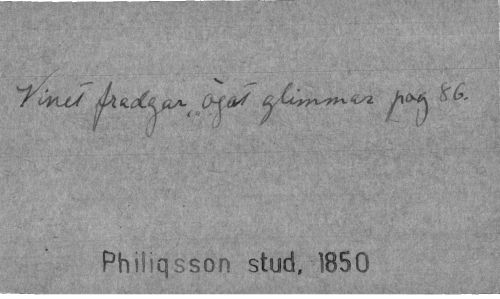 Vinet fradgar, ögat glimmar pag 86.
Philiqsson stud, 1850